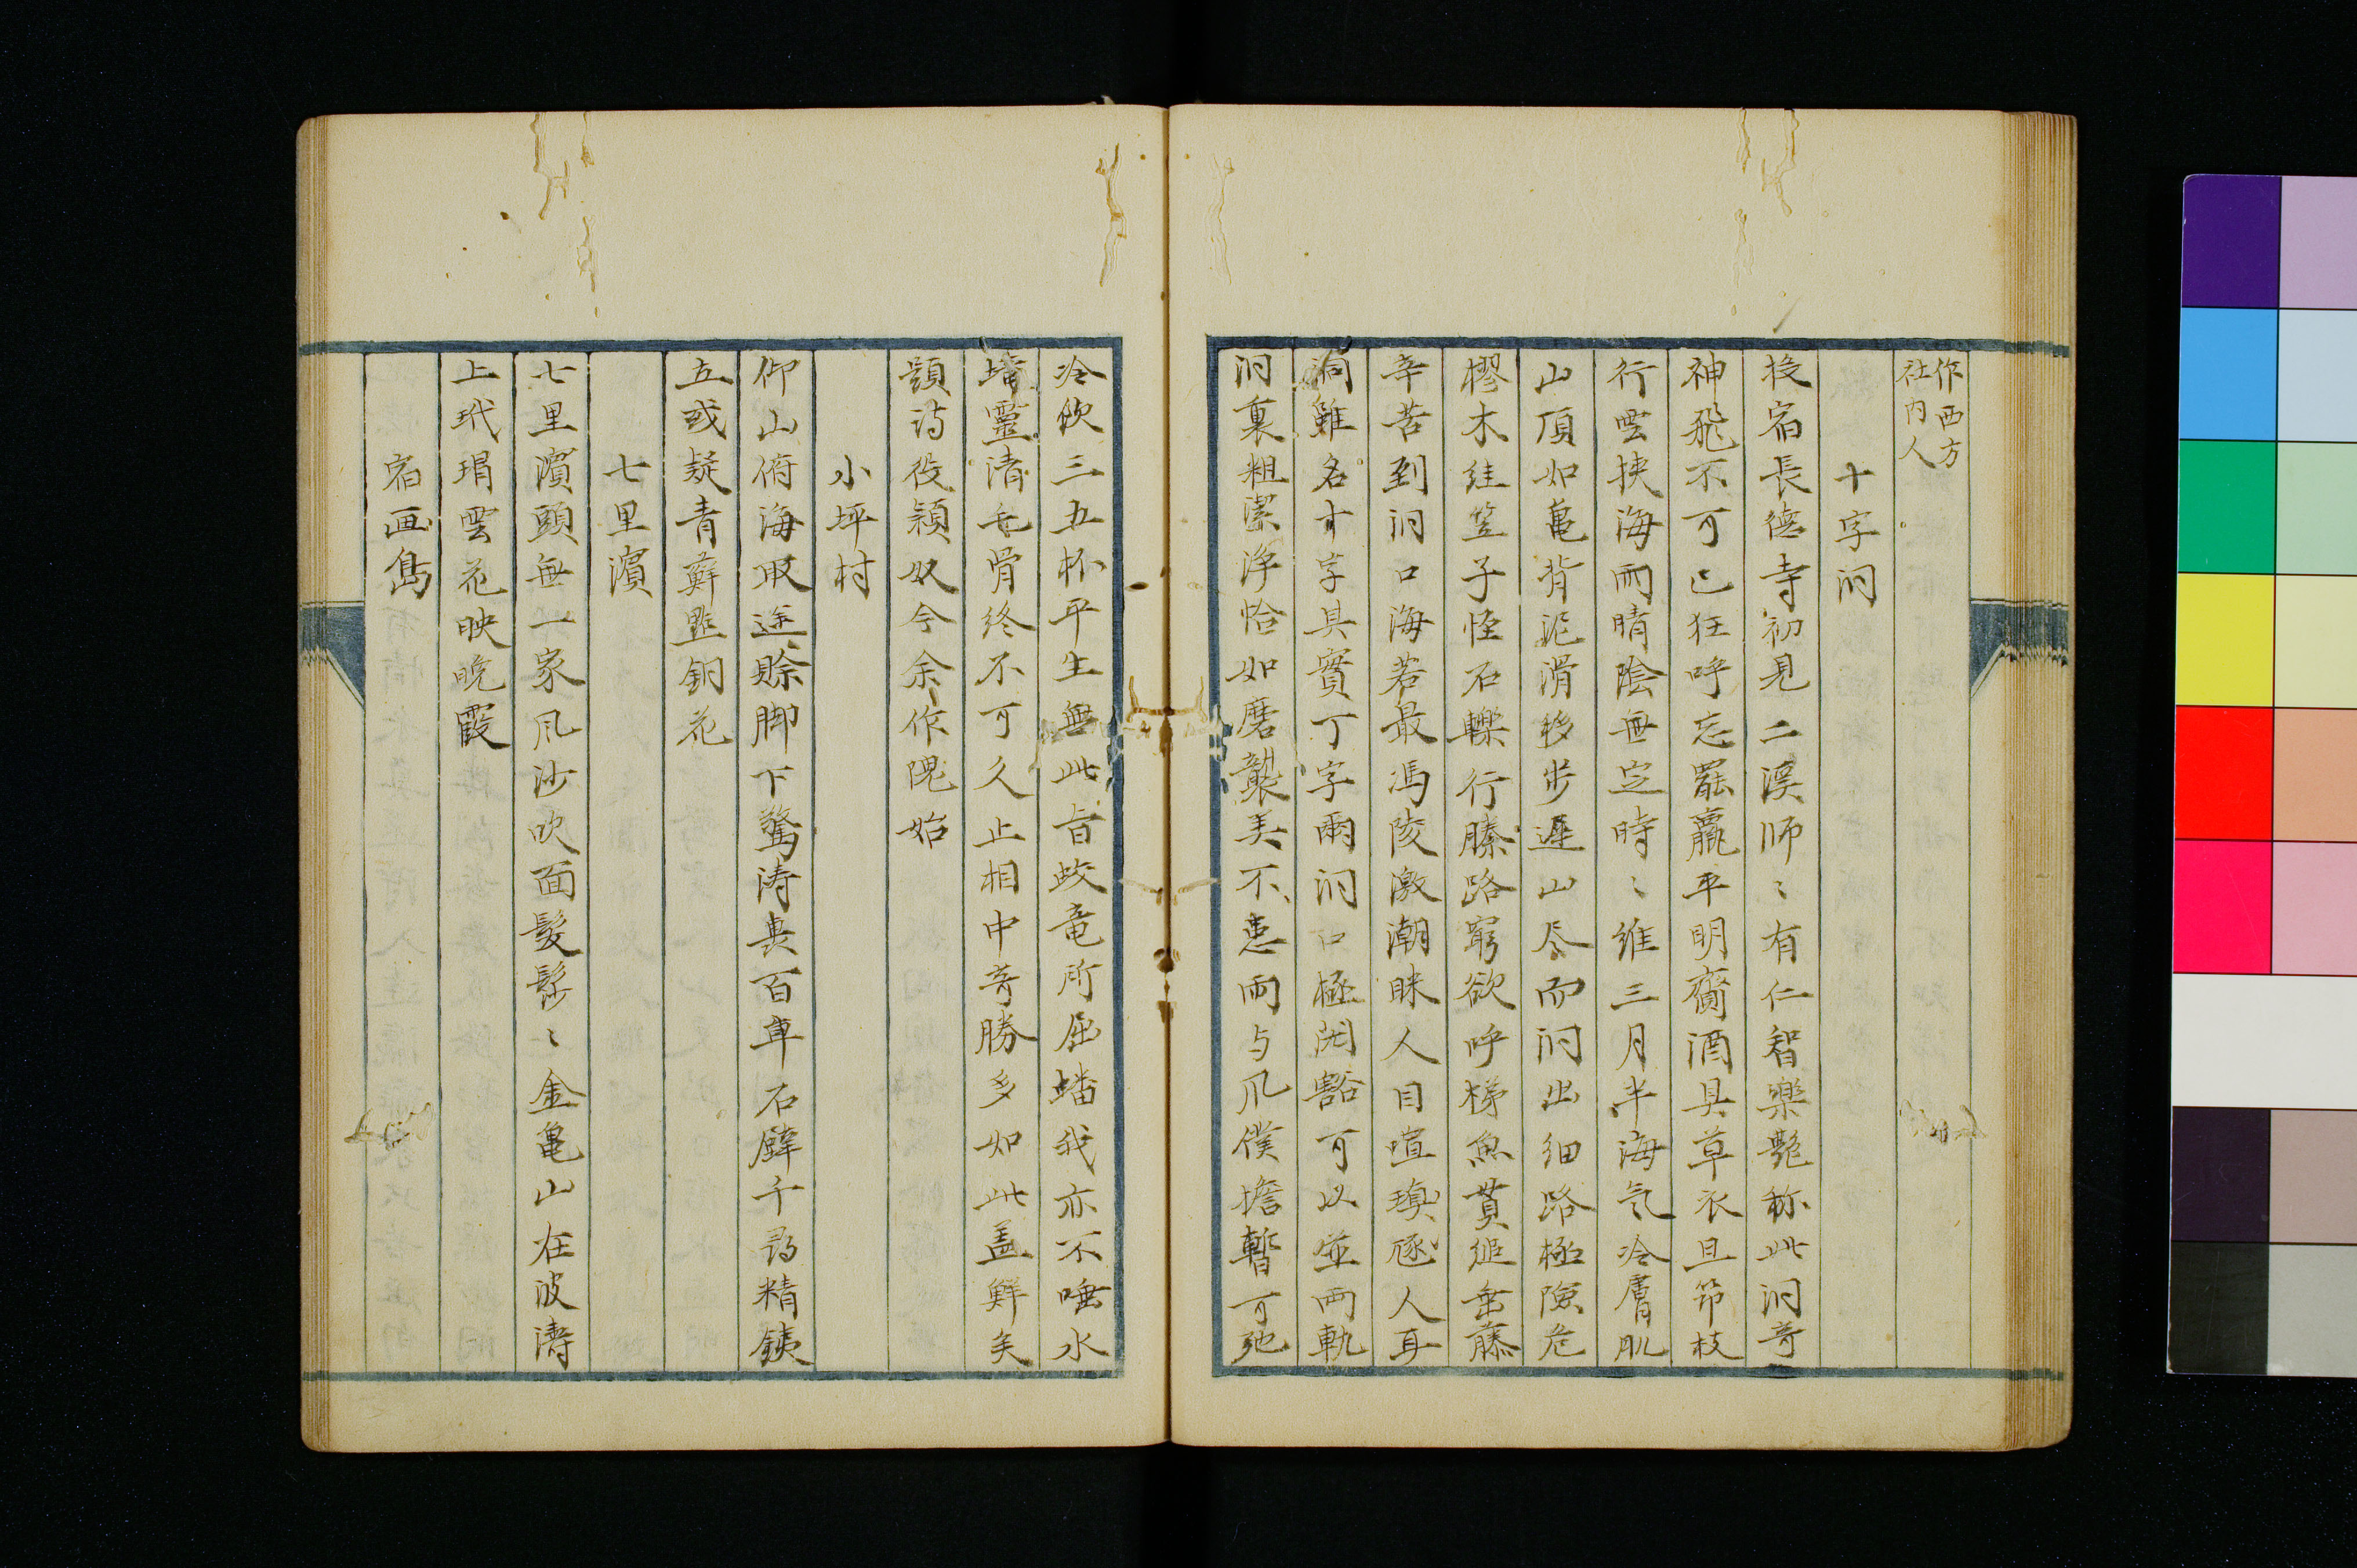 作西方
社内人
十字洞
投宿長徳寺初見二渓师〻有仁智楽艶称此洞奇
神飛不可已狂呼忘罷羸平明齎酒具草衣且笻枝
行雲挟海雨晴陰無定時〻維三月半海气冷膚肌
山頂如亀背泥滑移步遅山尽而洞出细路極險危
樛木絓笠子怪石轢行縢路窮欲呼梯魚貫縋垂藤
辛苦到洞口海若最馮陵激潮眯人目喧豗人耳
洞雖名十字其實丁字爾洞口極開豁可以並両軌
洞裏粗潔浄恰如磨礱美不患雨与风僕擔暫可弛
冷飲三五杯平生無此旨蛟竜所屈蟠我亦不唾水
境靈清毛骨終不可久止相中奇勝多如此盖鮮矣
題詩役潁奴今余作隗始
小坪村
仰山俯海取途賖脚下驚涛輿百車石壁千尋精鉄
五或疑青蘚是銅花
七里濱
七里濱頭無一家风沙吹面髮髿〻金亀山在波濤
上玳瑁雲花映晩霞
宿画島